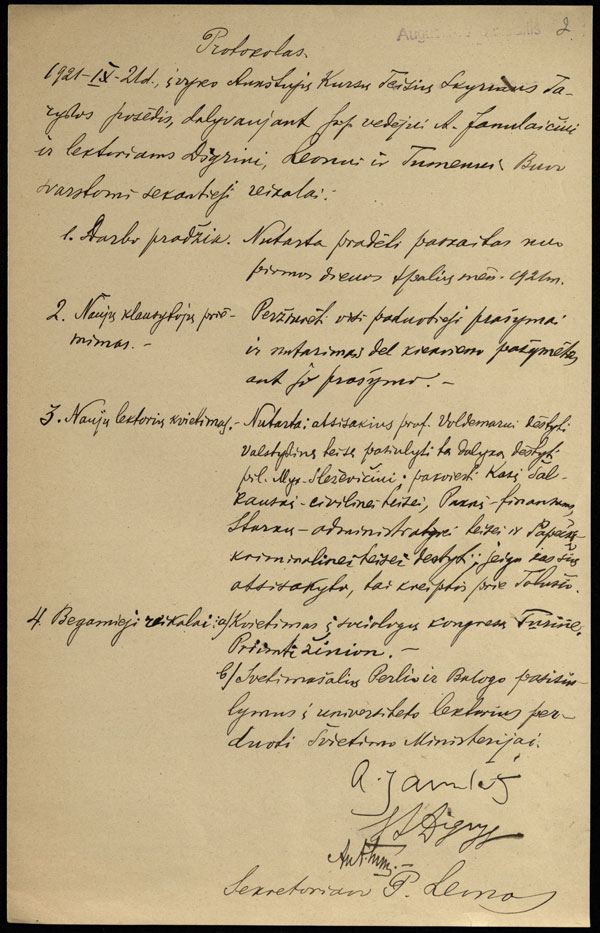 2.
Protokolas.
1921-IX-21d. įvyko Aukštųjų Kursų Teisių Skyriaus Ta-
rybos posėdis, dalyvaujant vedėjui A. Janulaičiui
ir lektoriams Digriui, Leonui ir Tumėnui. Buvo
svarstomi sekantieji reikalai:
1. Darbo pradžia. Nutarta pradėti paskaitas nuo
pirmos dienos spalių mėn. 1921 m.
2. Naujų klausytojų priė-
mimas. -
Peržiūrėti visi paduotieji prašymai
ir nutarimai dėl kiekvieno pažymėtas
ant jo prašymo. -
3. Naujų lektorių kvietimas. - Nutarta: atsisakius prof. Voldemarui dėstyti
valstybinę teisę pasiulyti tą dalyką dėstyti
pil. Myk. Sleževičiui; pakviesti Kazį Šal-
kauskį - civilinei teisei, - finansams,
Starkų - administratyvei teisei ir Papečkį
kriminalinei teisei dėstyti; jeigu kas jų
atsisakytų, tai kreiptis prie Tolušio.
4. Begamieji reikalai: a) Kvietimas į sociologų kongresą Turine.
Priimti žinion. -
b) Svetimšalių ir Balogo pasisiu-
lymus į universiteto lektorius per-
duoti Švietimo Ministerijai.
A. Janulaitis
Digrys
Ant. Tum.
Sekretorius P. Leonas